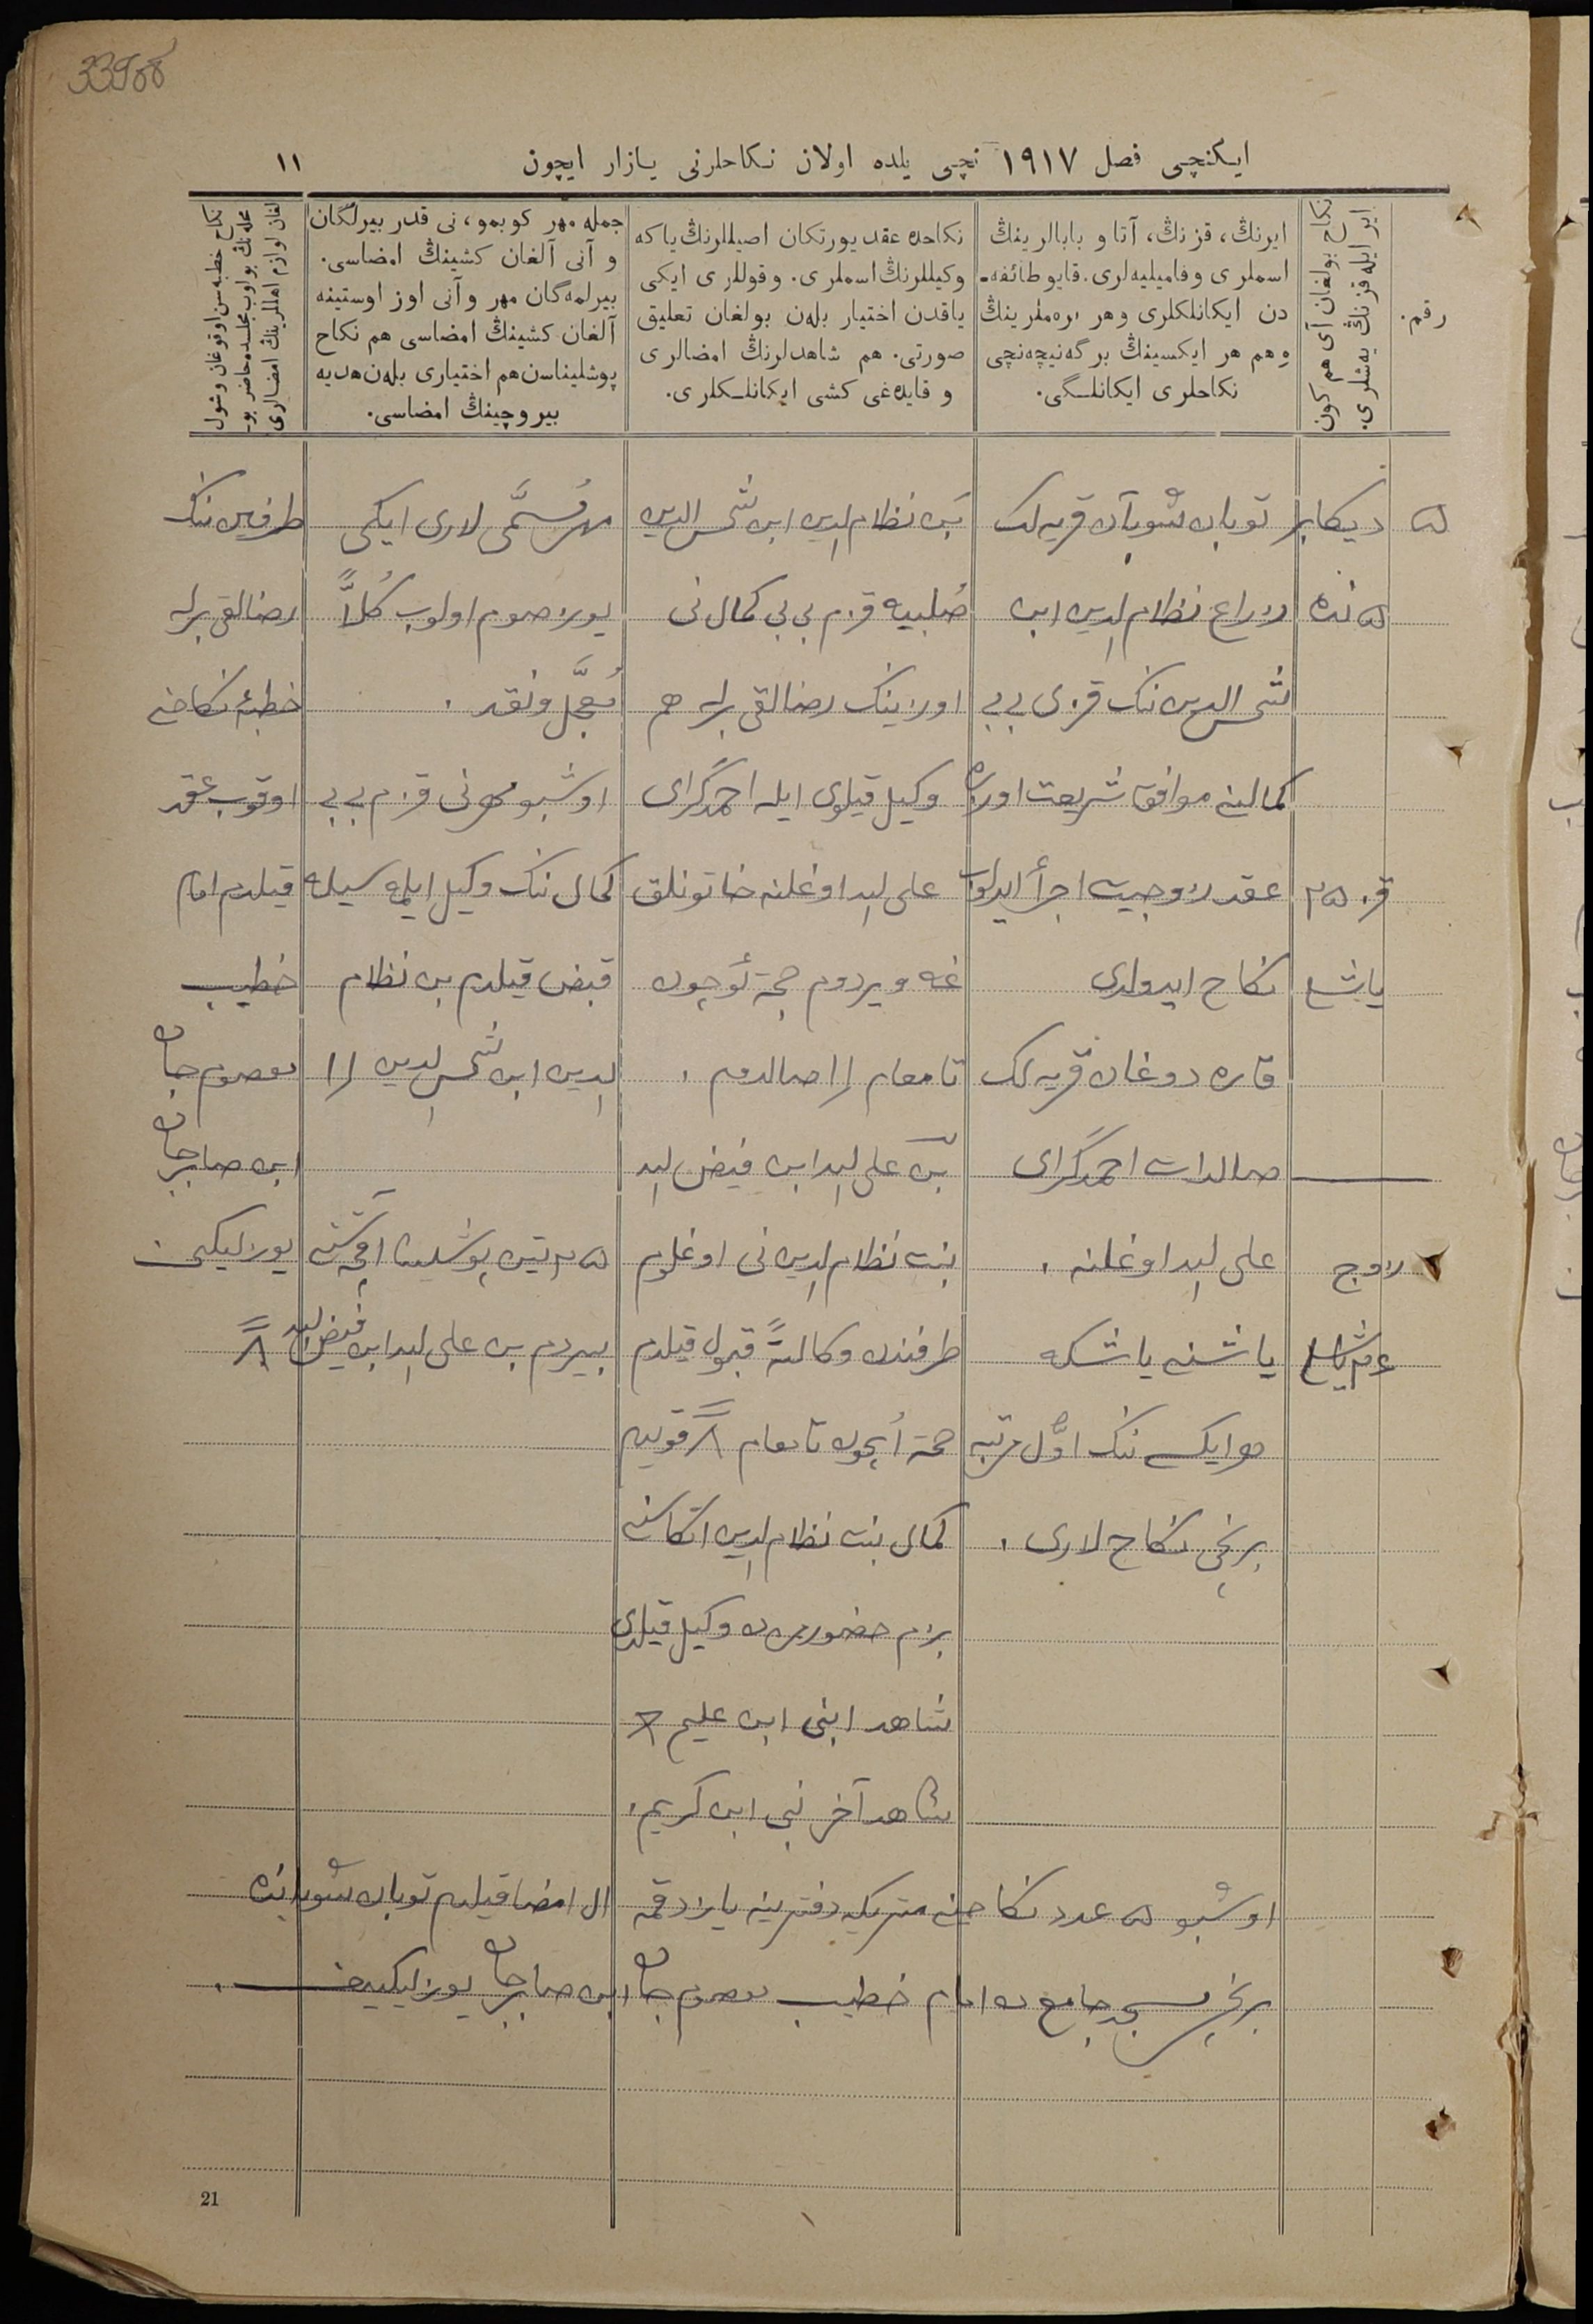 33988
ایکنچی فصل ١٩١٧ نچی یلده اولان نکاحلرنی یازار ایچون
١١
رقم.
نکاح بولغان آی هم کون
ایر ایله قزنڭ یه‌شلری.
ایرنڭ، قزنڭ، آتا و بابالرینڭ
اسملری و فامیلیه‌لری. قایو طائفه‌ـ
دن ایکانلکلری وهر برەملرینڭ
وهم هر ایکسینڭ برگه‌نیچه‌نچی
نکاحلری ایکانلـگی.
نکاحده عقد یورتکان اصیللرنڭ یاکه
وکیللرنڭ اسملری. وقوللری ایکی
یاقدن اختیار بله‌ن بولغان تعلیق
صورتی. هم شاهدلرنڭ امضالری
و قایده‌غی کشی ایکانلـکلری.
جمله مهر کوبمو، نی قدر بیرلگان
و آنی آلغان کشینڭ امضاسی.
بیرلمه‌گان مهر و آنی اوز اوستینه
آلغان کشینڭ امضاسی هم نکاح
پوشلیناسن هم اختیاری بله‌ن هدیه
بیروچینڭ امضاسی.
نکاح خطبه‌سن اوقوغان وشول
محله‌نڭ بولوب مجلسده حاضر بو ـ
لغان اوازم اهللرینڭ امضالری
۵
دیکابر
۵ نده
قز ۲۵
یاشلـ
زوج
یاشلـ
توبان شوبان قریه‌لک
زراع نظام الدین ابن
شمس الدین ننک قزی بی بی
کمالینه موافق شریعت اوزره
عقد زوجیت اجرأ ایدلوب
نکاح ایدولدی
قاره دوغان قریه‌لک
صالدات احمدگرای
علی الله اوغلنه .
یاشنه یاشکه
هر ایکسی ننک اوّل مرتبه
برنچی نکاح لاری .
بن نظام الدین ابن شمس الدین
صُلبیه قزم بی بی کمال نی
اوزیننک رضالقی برله هم
وکیل قیلوی ایله احمدگرای
علی الله اوغلنه خاتونلق
غه ویردوم حجة ئوچون
تامغام صالدوم .
بن علی الله ابن فیض الله
بنت نظام الدین نی اوغلوم
طرفندن وکالةً قبول قیلدم
حجة اُچون تامغام قویدم
کمال بنت نظام الدین اتکاسنی
بزم حضورمزده وکیل قیلدی
شاهد ابن علیم
شاهد آخر نبی ابن کریم .
مهر مُسمَّی لاری ایکی
یوز صوم اولوب کُلاًّ
مُعجَّل ونقد .
اوشبو مهرنی قزم بی بی
کمال ننک وکیل ایله سیله
قبض قیلدم بن نظام
الدین ابن شمس الدین
۲۵ تین پوشلینا اقچه‌سنی
بیردم بن علی الله ابن فیض الله
طرفین ننک
رضالقی برله
خطبۀ نکاحنی
اوقوب عقد
قیلدم امام
خطیب
معصوم جان
ابن صابرجان
یوزلیکیف
اوشبو ۵ عدد نکاحینه متریکه دفترینه یازدقمه ال امضا قیلدم توبان شوباننده
برنچی مسجد جامع ده امام خطیب معصوم جان ابن صابرجان یوزلیکییف .
21